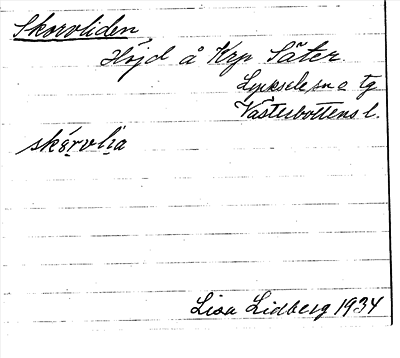 Skorvliden
Höjd å Krp Säter.
Lycksele sn o tg
Västerbottens l.
skèrvlìa
Lisa Lidberg 1934